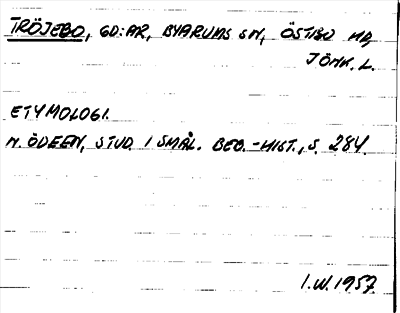 TRÖJEBO, GD:AR, BYARUMS SN, ÖSTBO HD,
JÖNK. L.
ETYMOLOGI.
N. ÖDEEN, STUD. I SMÅL. BEB.-HIST., S. 284.
I.W. 1957.